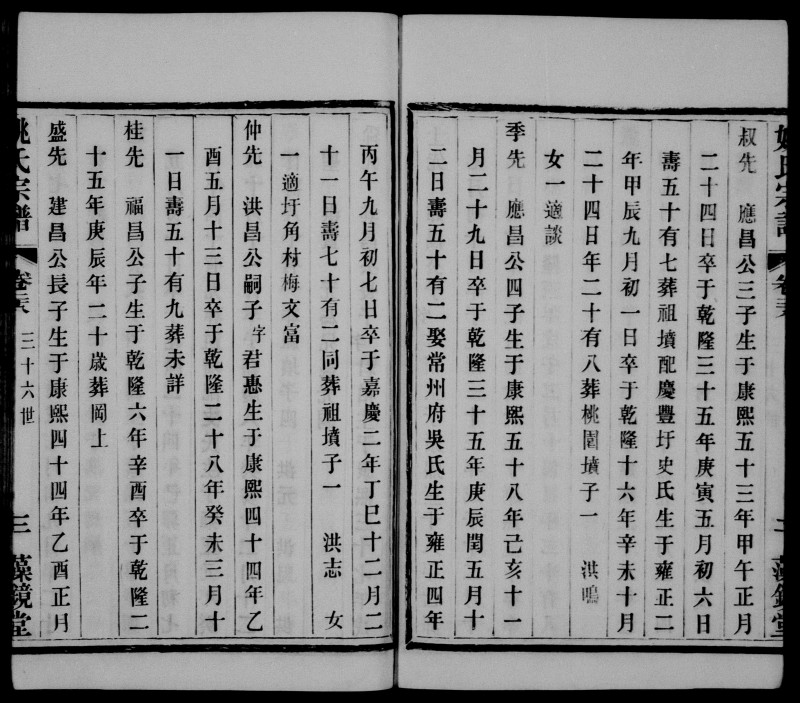 叔先 應昌公三子生于康熙五十三年甲午正月
二十四日卒于乾隆三十五年庚寅五月初六日
壽五十有七葬祖墳配慶豐圩史氏生于雍正二
年甲辰九月初一日卒于乾隆十六年辛未十月
二十四日年二十有八葬桃園墳子一 洪鳴
女一適談
季先 應昌公四子生于康熙五十八年己亥十一
月二十九日卒于乾隆三十五年庚辰閏五月十
二日壽五十有二娶常州府吳氏生于雍正四年
丙午九月初七日卒于嘉慶二年丁巳十二月二
十一日壽七十有二同葬祖墳子一 洪志 女
一適圩角村梅文富
仲先 洪昌公嗣子字君惠生于康熙四十四年乙
酉五月十三日卒于乾隆二十八年癸未三月十
一日壽五十有九葬未詳
桂先 福昌公子生于乾隆六年辛酉卒于乾隆二
十五年庚辰年二十歲葬岡上
盛先 建昌公長子生于康熙四十四年乙酉正月
姚氏宗譜 卷 三十六世 三 藻鏡堂